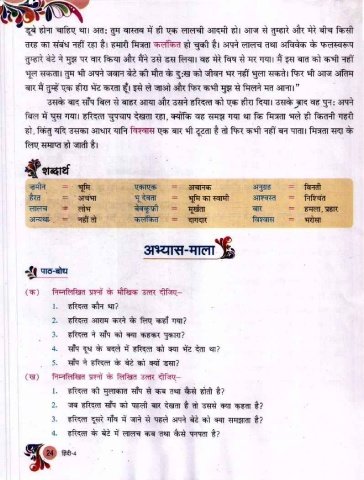 डूबे होना चाहिए था। अतः तुम वास्तव में ही एक लालची आदमी हो। आज से तुम्हारे और मेरे बीच किसी
तरह का संबंध नहीं रहा है। हमारी मित्रता कलंकित हो चुकी है। अपने लालच तथा अविवेक के फलस्वरूप
तुम्हारे बेटे ने मुझ पर वार किया और मैंने उसे डस लिया। वह मेरे विष से मर गया। मैं इस बात को कभी नहीं
भूल सकता। तुम भी अपने जवान बेटे की मौत के दुःख को जीवन भर नहीं भुला सकते। फिर भी आज अंतिम
बार मैं तुम्हें एक हीरा भेंट करता हूँ। इसे ले जाओ और फिर कभी मुझ से मिलने मत आना।"
उसके बाद साँप बिल से बाहर आया और उसने हरिदत्त को एक हीरा दिया। उसके बाद वह पुनः अपने
बिल में घुस गया। हरिदत्त चुपचाप देखता रहा, क्योंकि वह समझ गया था कि मित्रता भले ही कितनी गहरी
हो, किंतु यदि उसका आधार यानि विश्वास एक बार भी टूटता है तो फिर कभी नहीं बन पाता। मित्रता सदा के
लिए समाप्त हो जाती है।
शब्दार्थ
जमीन = भूमि एकाएक = अचानक अनुग्रह = विनती
हैरत = अचंभा भू देवता = भूमि का स्वामी आश्वस्त = निश्चिंत
लालच = लोभ बेवकूफी = मूर्खता वार = हमला, प्रहार
अन्यथा = नहीं तो कलंकित = दागदार विश्वास = भरोसा
अभ्यास-माला
पाठ-बोध
(क) निम्नलिखित प्रश्नों के मौखिक उत्तर दीजिए–
1. हरिदत्त कौन था?
2. हरिदत्त आराम करने के लिए कहाँ गया?
3. हरिदत्त ने साँप को क्या कहकर पुकारा?
4. साँप दूध के बदले में हरिदत्त को क्या भेंट देता था?
5. साँप ने हरिदत्त के बेटे को क्यों डसा?
(ख) निम्नलिखित प्रश्नों के लिखित उत्तर दीजिए–
1. हरिदत्त की मुलाकात साँप से कब तथा कैसे होती है?
2. जब हरिदत्त साँप को पहली बार देखता है तो उससे क्या कहता है?
3. हरिदत्त दूसरे गाँव में जाने से पहले अपने बेटे को क्या समझाता है?
4. हरिदत्त के बेटे में लालच कब तथा कैसे पनपता है?
24 हिंदी-4